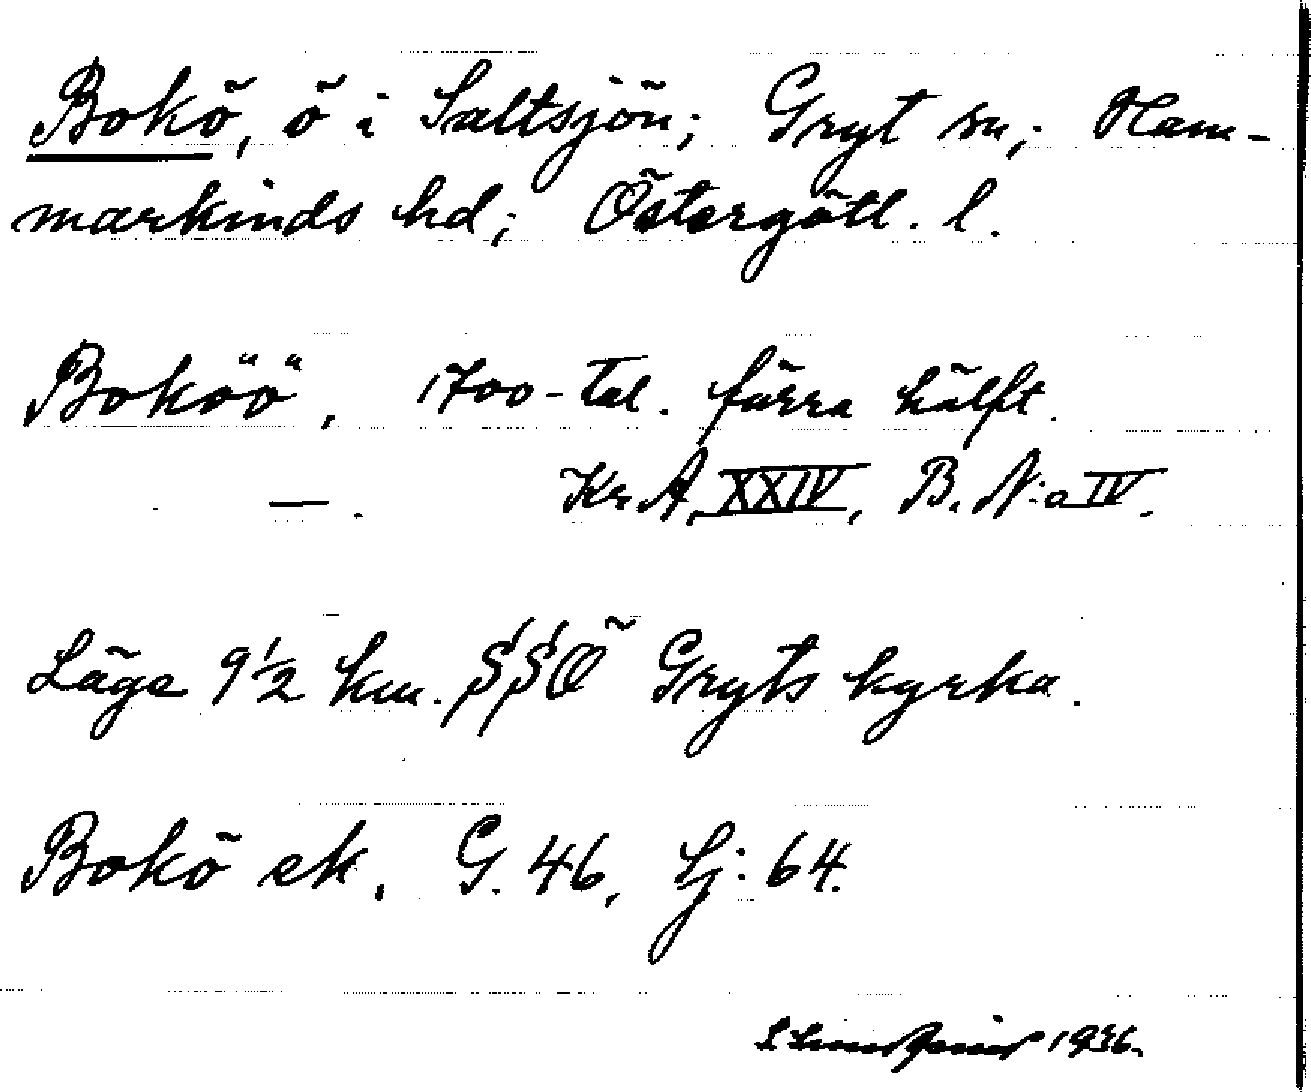 Bokö, ö i Saltsjön; Gryt sn; Ham-
markinds hd; Östergötl. l.
Boköö, 1700-tal. förra hälft.
—. Kr. A. XXIV, B. N:o IV.
Läge 9½ km. SSÖ Gryts kyrka.
Bokö ek. G. 46, Sj: 64.
1936.